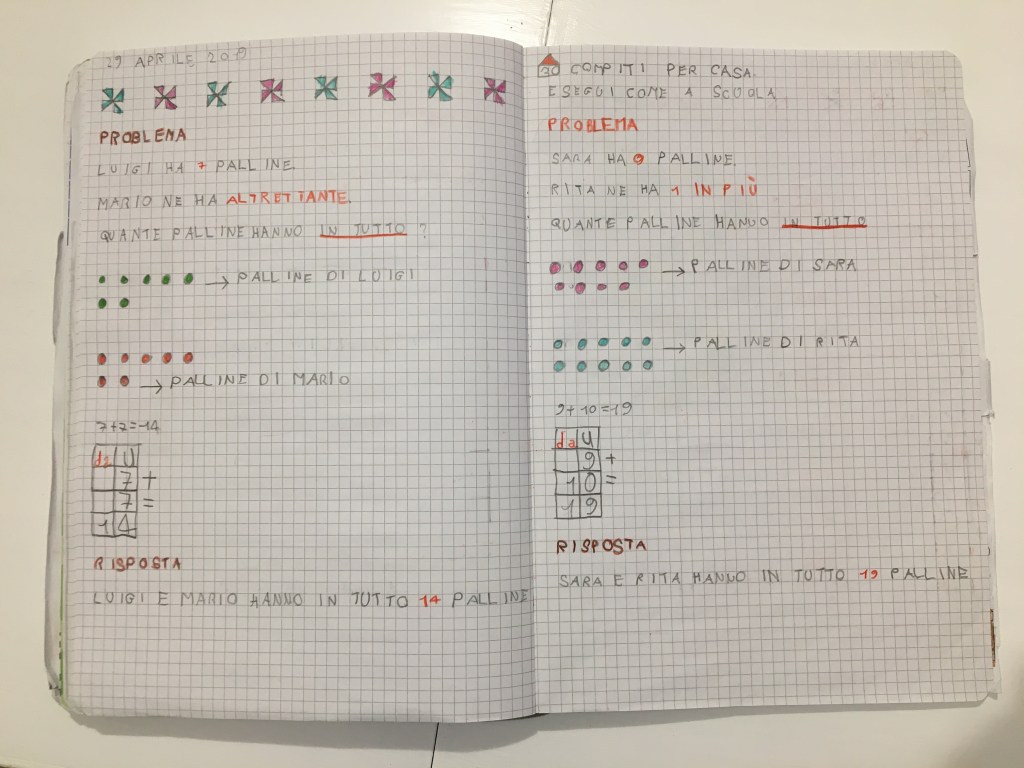 29 APRILE
PROBLEMA
LUIGI HA 7 PALLINE.
MARIO NE HA ALTRETTANTE.
QUANTE PALLINE HANNO IN TUTTO ?
→ PALLINE DI LUIGI
→ PALLINE DI MARIO
7+7=14
da U
7 +
7 =
14
RISPOSTA
LUIGI E MARIO HANNO IN TUTTO 14 PALLINE
30 COMPITI PER CASA.
ESEGUI COME A SCUOLA
PROBLEMA
SARA HA 9 PALLINE.
RITA NE HA 1 IN PIÙ
QUANTE PALLINE HANNO IN TUTTO
→ PALLINE DI SARA
→ PALLINE DI RITA
9+10=19
da U
9 +
10 =
19
RISPOSTA
SARA E RITA HANNO IN TUTTO 19 PALLINE